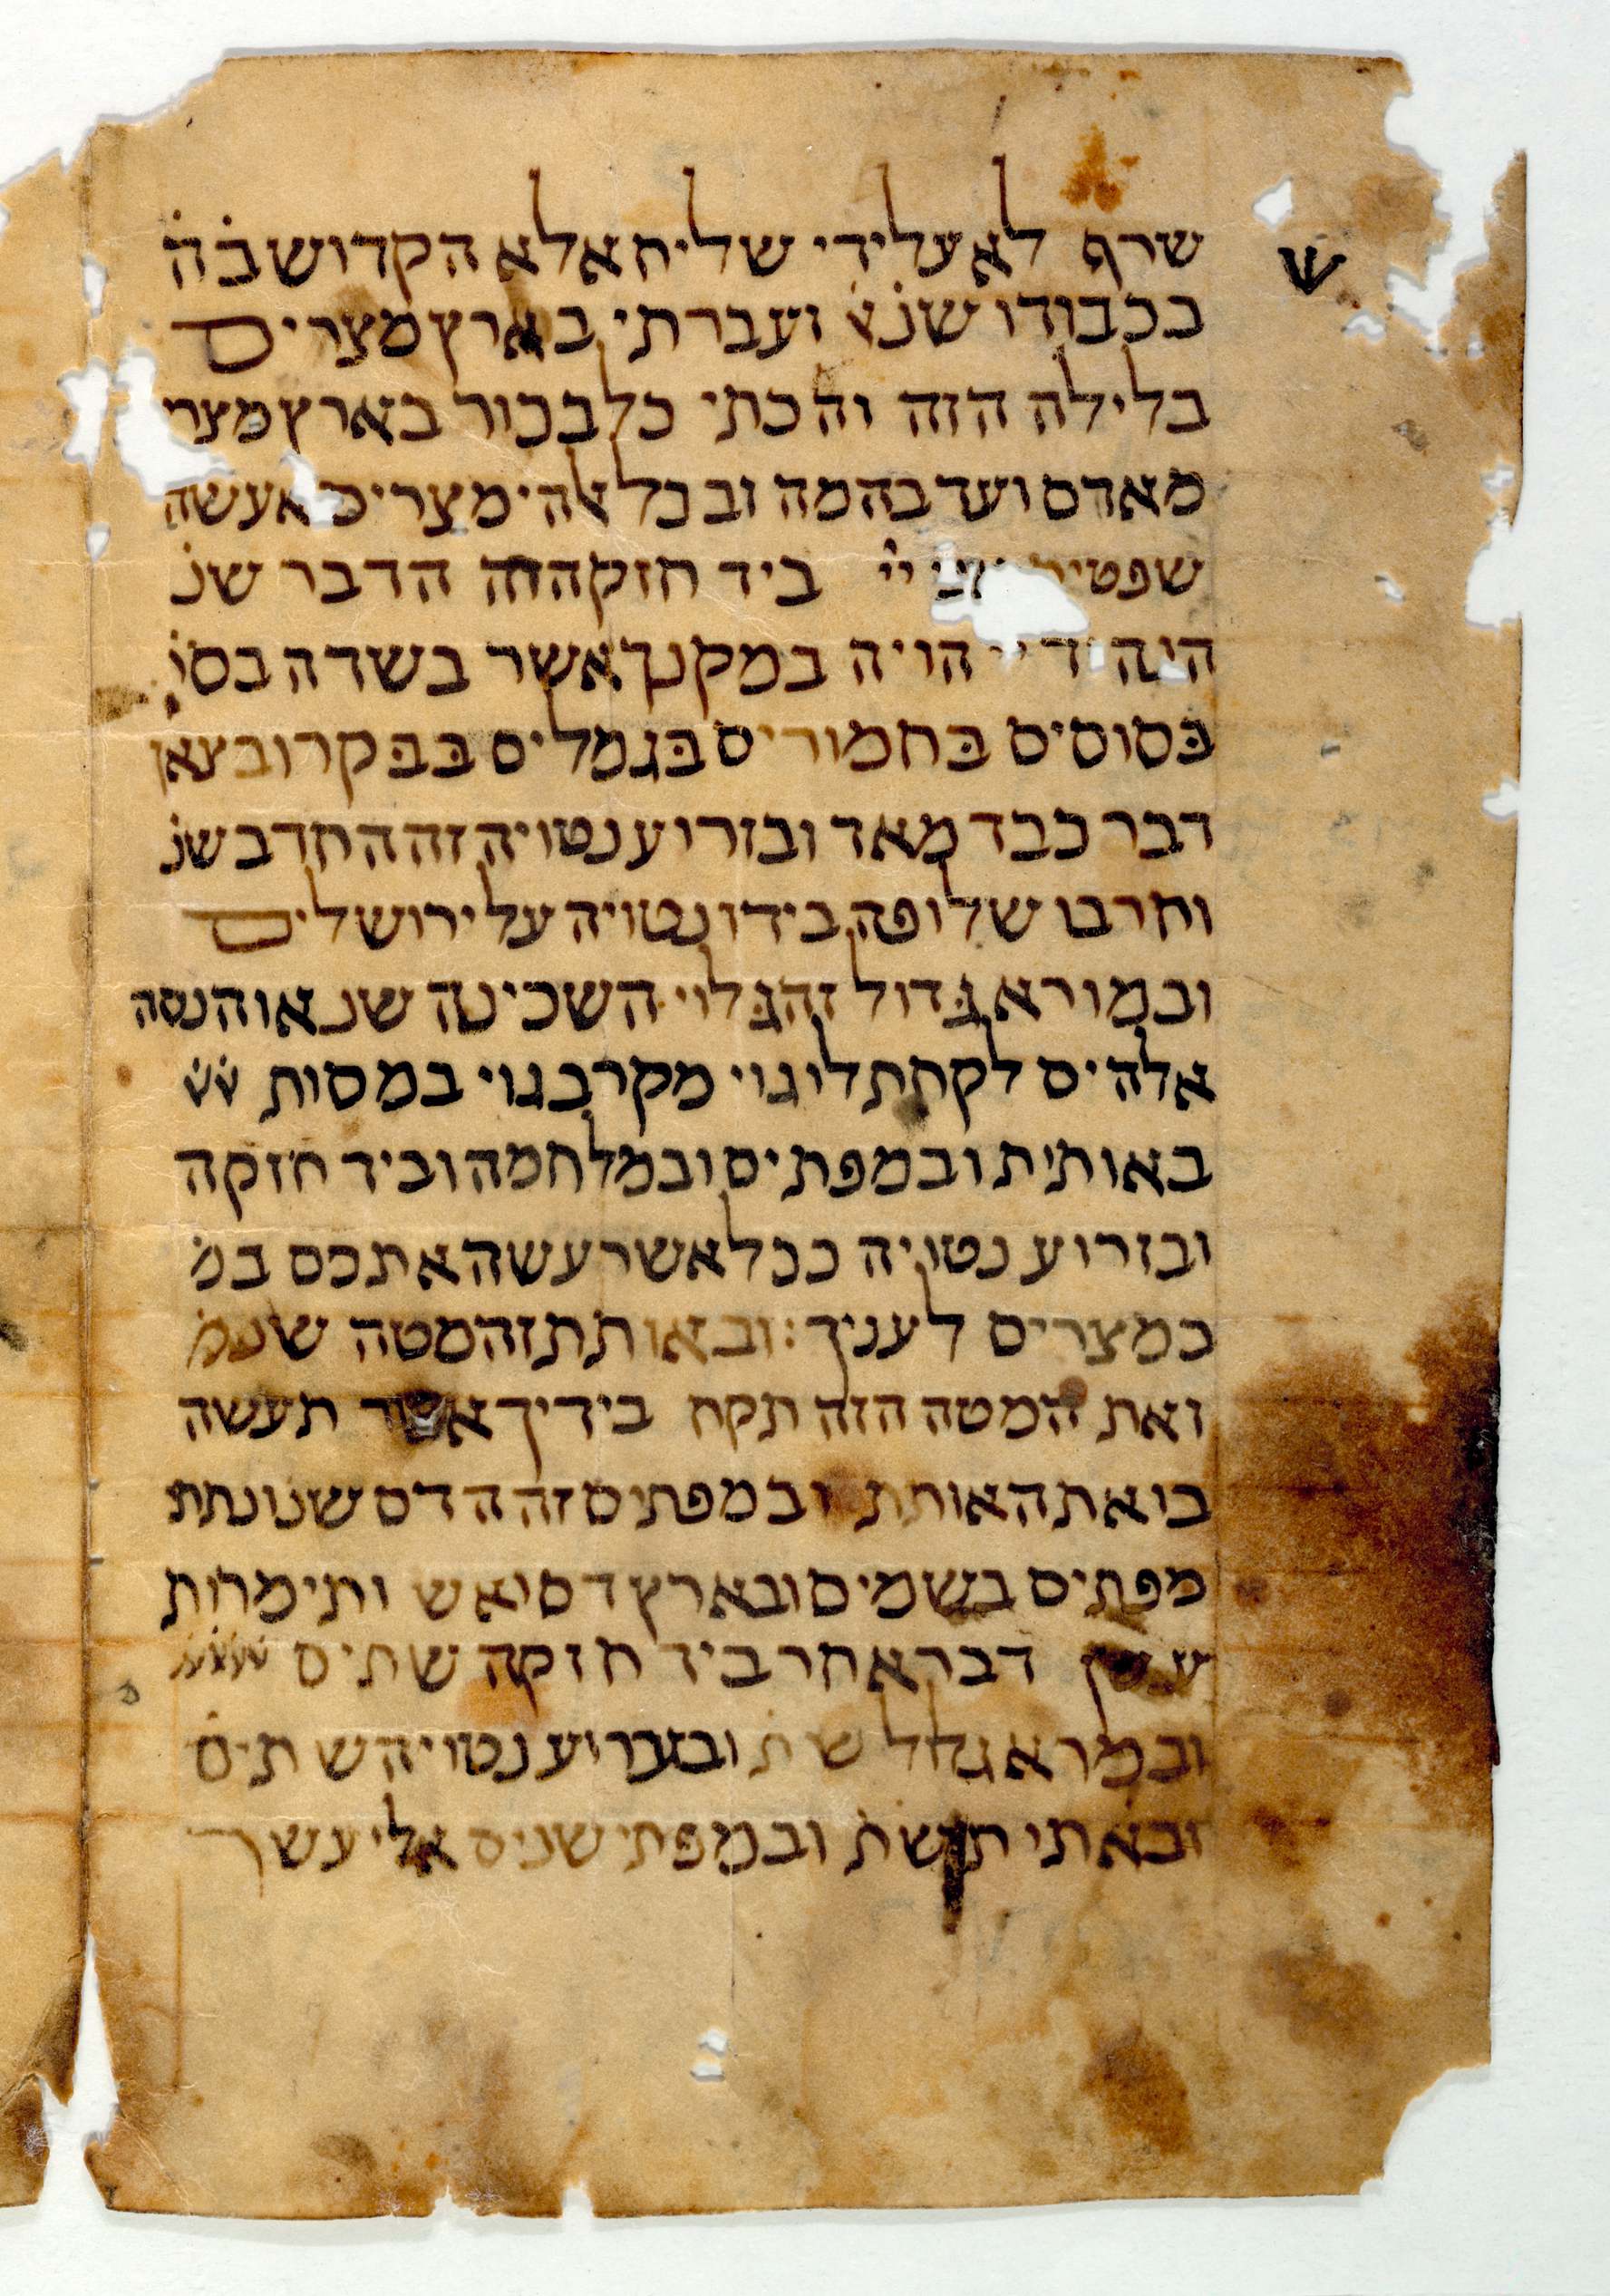 שרף לא על ידי שליח אלא הקדוש בה
בכבודו שנא ועברתי בארץ מצרים
בלילה הזה והכתי כל בכור בארץ מצרי
מאדם ועד בהמה ובכל אלהי מצרים אעשה
שפטים אני יי ביד חזקה זה הדבר שנ
הנה יד יי הויה במקנך אשר בשדה בסו
בסוסים בחמורים בגמלים בבקר ובצאן
דבר כבד מאד ובזרוע נטויה זה החרב שנ
וחרבו שלופה בידו נטויה על ירושלים
ובמורא גדול זה גלוי השכינה שנ או הנסה
אלהים לקחת לו גוי מקרב גוי במסות
באותית ובמפתים ובמלחמה וביד חזקה
ובזרוע נטויה ככל אשר עשה אתכם במ
במצרים לעניך: ובאותת זה המטה שנמ
ואת המטה הזה תקח בידיך אשר תעשה
בו את האותת ובמפתים זה הדם שנ ונתת
מפתים בשמים ובארץ דם ואש ותימרות
עשן דבר אחר ביד חזקה שתים
ובמרא גדל שת ובזרוע נטויה שתים
ובאתי שת ובמפתי שנים אלי עשר
ש